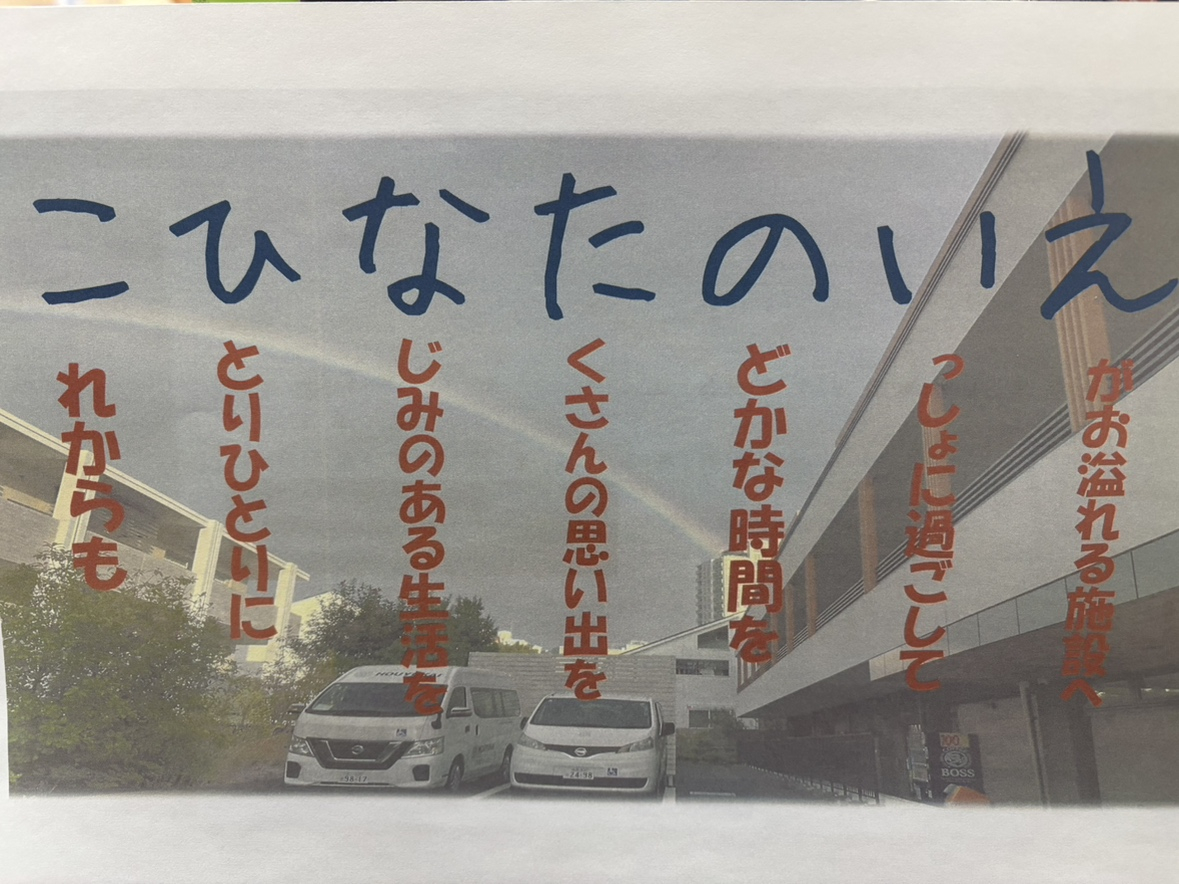 こひなたのいえ
れからも
とりひとりに
じみのある生活を
くさんの思い出を
どかな時間を
っしょに過ごして
がお溢れる施設へ
24-98
100
BOSS